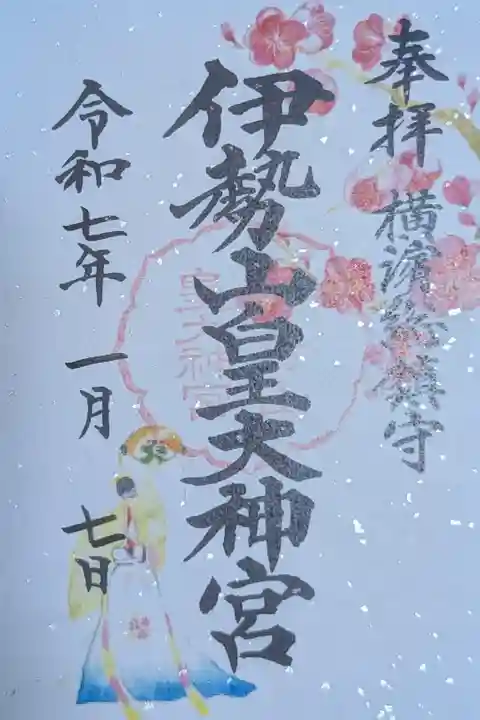 奉拝 横濵総鎮守
伊勢山皇大神宮
令和七年 一月 七日